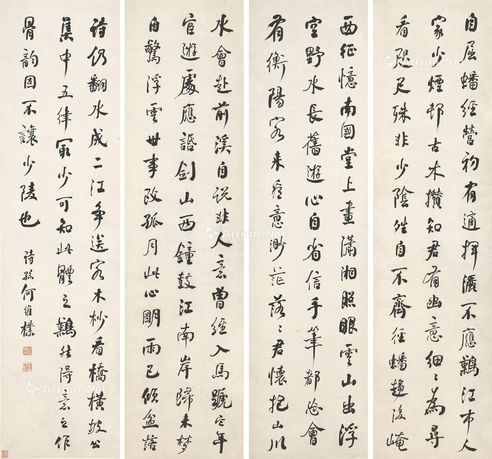 自屈蟠經營初有適揮灑不應難江市人
家少煙邨古木攢知君有幽意細〻為尋
看咫尺殊非少陰晴自不齊徑蟠趨後崦
西征憶南國堂上畫瀟湘照眼雲山出浮
空野水長舊遊心自省信手筆都忘會
有衡陽客來看意渺茫落〻君懷抱山川
水會赴前溪自說非人意曾經入馬蹄他年
宦遊處應話劍山西鐘鼓江南岸歸來夢
自驚浮雲世事改孤月此心明雨已傾盆落
詩仍翻水成二江爭送客木杪看橋橫坡公
集中五律最少可知此體之難然得意之作
骨韻固不讓少陵也
詩孫何維樸